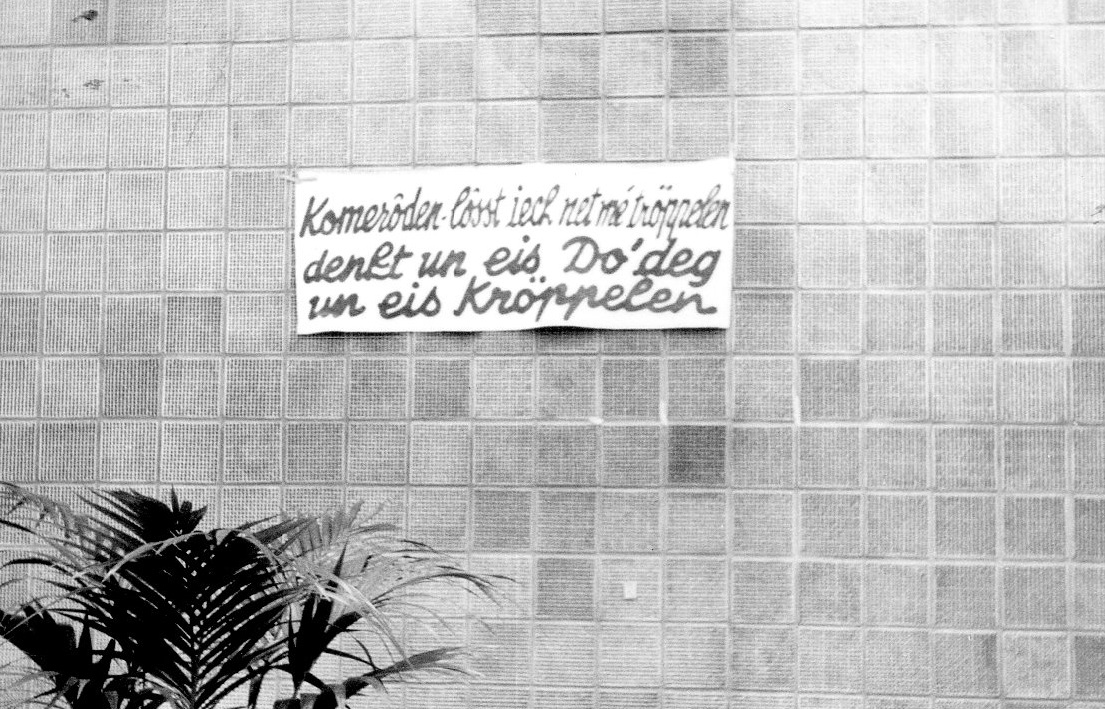 Komerôden. lôsst iech net mé tröppelen
denkt un eis Do'deg
un eis Kröppelen